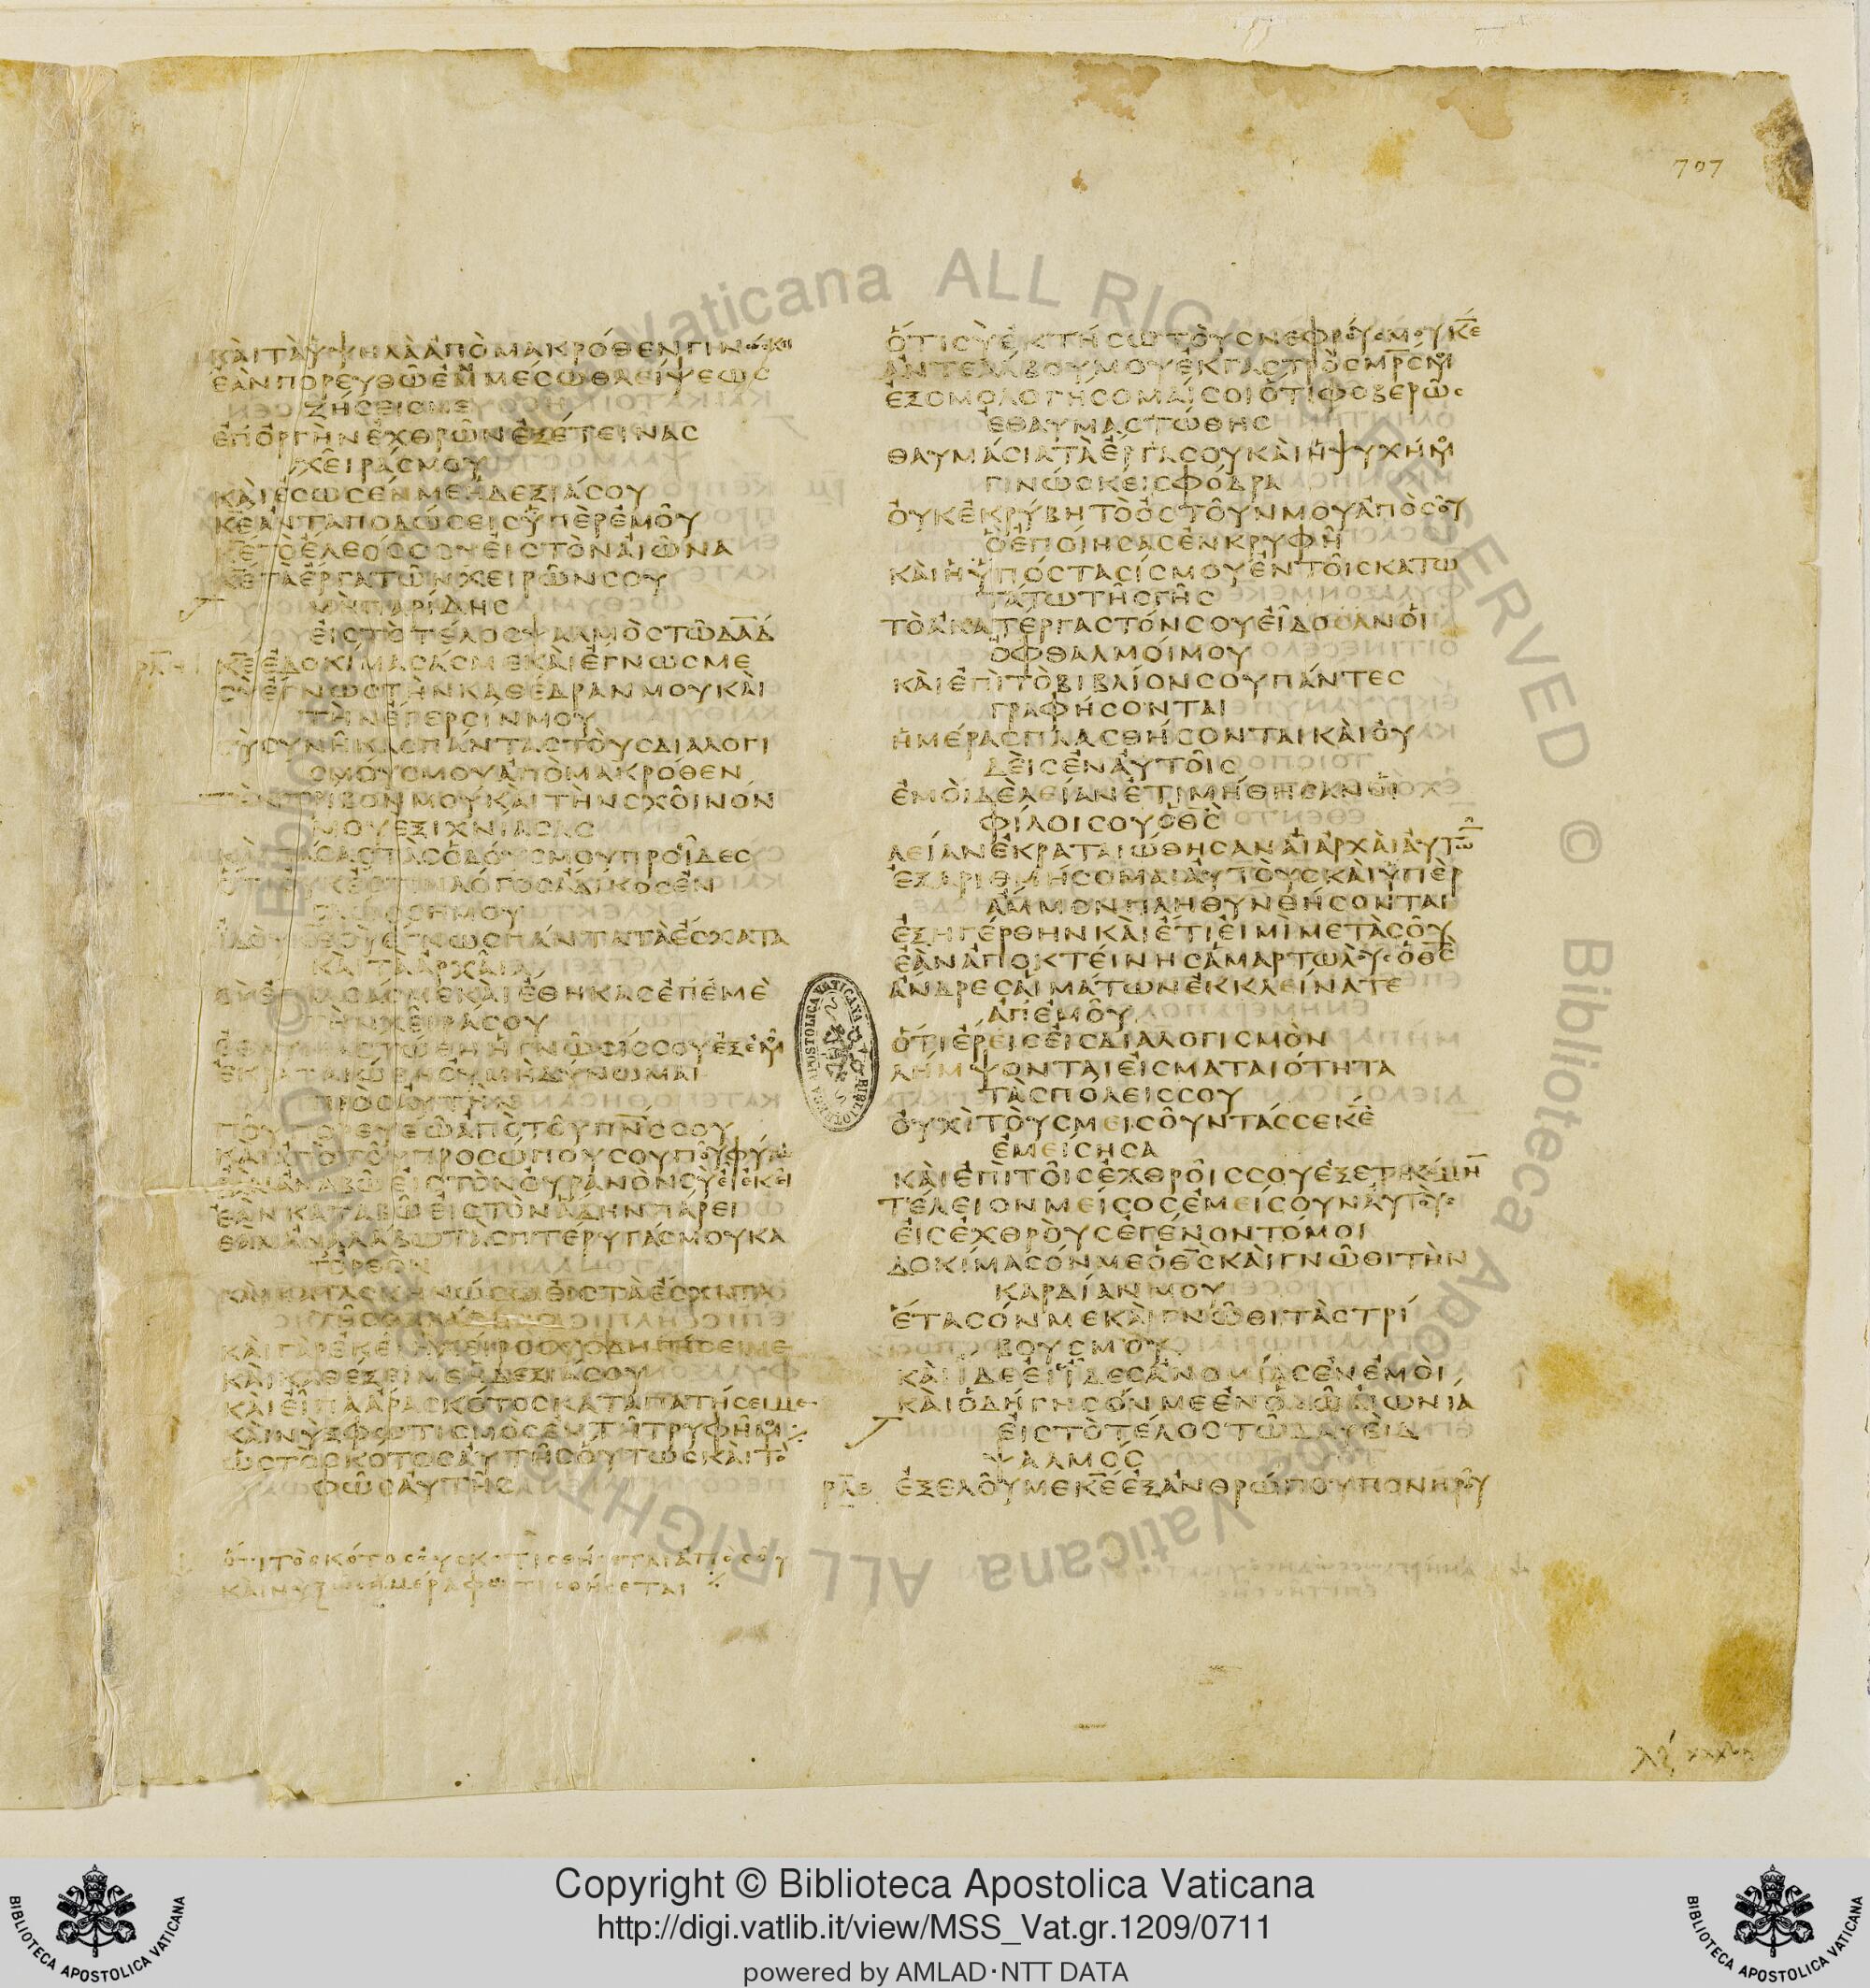 707
ΚΑΙΤΑΥΨΗΛΑΑΠΟΜΑΚΡΟΘΕΝΓΙΝΩϹΚΕΙ
ΕΑΝΠΟΡΕΥΘΩΕΜΜΕϹΩΘΛΕΙΨΕΩϹ
ΖΗϹΕΙϹΜΕ
ΕΠΟΡΓΗΝΕΧΘΡΩΝΕΞΕΤΕΙΝΑϹ
ΧΕΙΡΑϹΜΟΥ
ΚΑΙΕϹΩϹΕΝΜΕΗΔΕΞΙΑϹΟΥ
ΚΕΑΝΤΑΠΟΔΩϹΕΙϹΥΠΕΡΕΜΟΥ
ΚΕΤΟΕΛΕΟϹϹΟΥΕΙϹΤΟΝΑΙΩΝΑ
ΚΕΤΑΕΡΓΑΤΩΝΧΕΙΡΩΝϹΟΥ
ΜΗΠΑΡΙΔΗϹ
ΕΙϹΤΟΤΕΛΟϹΨΑΛΜΟϹΤΩΔΑΔ
ΡΛΗ ΚΕΕΔΟΚΙΜΑϹΑϹΜΕΚΑΙΕΓΝΩϹΜΕ
ϹΥΕΓΝΩϹΤΗΝΚΑΘΕΔΡΑΝΜΟΥΚΑΙ
ΤΗΝΕΓΕΡϹΙΝΜΟΥ
ϹΥϹΥΝΗΚΑϹΠΑΝΤΑϹΤΟΥϹΔΙΑΛΟΓΙ
ϹΜΟΥϹΜΟΥΑΠΟΜΑΚΡΟΘΕΝ
ΤΗΝΤΡΙΒΟΝΜΟΥΚΑΙΤΗΝϹΧΟΙΝΟΝ
ΜΟΥΕΞΙΧΝΙΑϹΑϹ
ΚΑΙΠΑϹΑϹΤΑϹΟΔΟΥϹΜΟΥΠΡΟΙΔΕϹ
ΟΤΙΟΥΚΕϹΤΙΝΛΟΓΟϹΑΔΙΚΟϹΕΝ
ΓΛΩϹϹΗΜΟΥ
ΙΔΟΥΚΕϹΥΕΓΝΩϹΠΑΝΤΑΤΑΕϹΧΑΤΑ
ΚΑΙΤΑΑΡΧΑΙΑ
ϹΥΕΠΛΑϹΑϹΜΕΚΑΙΕΘΗΚΑϹΕΠΕΜΕ
ΤΗΝΧΕΙΡΑϹΟΥ
ΕΘΑΥΜΑϹΤΩΘΗΗΓΝΩϹΙϹϹΟΥΕΞΕΜΟΥ
ΕΚΡΑΤΑΙΩΘΗΟΥΜΗΔΥΝΩΜΑΙ
ΠΡΟϹΑΥΤΗΝ
ΠΟΥΠΟΡΕΥΘΩΑΠΟΤΟΥΠΝϹϹΟΥ
ΚΑΙΑΠΟΤΟΥΠΡΟϹΩΠΟΥϹΟΥΠΟΥΦΥΓΩ
ΕΑΝΑΝΑΒΩΕΙϹΤΟΝΟΥΡΑΝΟΝϹΥΕΙΕΚΕΙ
ΕΑΝΚΑΤΑΒΩΕΙϹΤΟΝΑΔΗΝΠΑΡΕΙ
ΕΑΝΑΝΑΛΑΒΩΤΑϹΠΤΕΡΥΓΑϹΜΟΥΚΑ
ΤΟΡΘΟΝ
ΚΑΙΚΑΤΑϹΚΗΝΩϹΩΕΙϹΤΑΕϹΧΑΤΑ
ΤΗϹΘΑΛΑϹϹΗϹ
ΚΑΙΓΑΡΕΚΕΙΗΧΕΙΡϹΟΥΟΔΗΓΗϹΕΙΜΕ
ΚΑΙΚΑΘΕΞΕΙΜΕΗΔΕΞΙΑϹΟΥ
ΚΑΙΕΙΠΑΑΡΑϹΚΟΤΟϹΚΑΤΑΠΑΤΗϹΕΙΜΕ
ΚΑΙΝΥΞΦΩΤΙϹΜΟϹΕΝΤΗΤΡΥΦΗΜΟΥ
ΩϹΤΟϹΚΟΤΟϹΑΥΤΗϹΟΥΤΩϹΚΑΙΤΟ
ΦΩϹΑΥΤΗϹ
ΟΤΙΤΟϹΚΟΤΟϹΟΥϹΚΟΤΙϹΘΗϹΕΤΑΙΑΠΟϹΟΥ
ΚΑΙΝΥΞΩϹΗΜΕΡΑΦΩΤΙϹΘΗϹΕΤΑΙ
ΟΤΙϹΥΕΚΤΗϹΩΤΟΥϹΝΕΦΡΟΥϹΜΟΥΚΕ
ΑΝΤΕΛΑΒΟΥΜΟΥΕΚΓΑϹΤΡΟϹΜΡϹΜΟΥ
ΕΞΟΜΟΛΟΓΗϹΟΜΑΙϹΟΙΟΤΙΦΟΒΕΡΩϹ
ΕΘΑΥΜΑϹΤΩΘΗϹ
ΘΑΥΜΑϹΙΑΤΑΕΡΓΑϹΟΥΚΑΙΗΨΥΧΗΜΟΥ
ΓΙΝΩϹΚΕΙϹΦΟΔΡΑ
ΟΥΚΕΚΡΥΒΗΤΟΟϹΤΟΥΝΜΟΥΑΠΟϹΟΥ
ΟΕΠΟΙΗϹΑϹΕΝΚΡΥΦΗ
ΚΑΙΗΥΠΟϹΤΑϹΙϹΜΟΥΕΝΤΟΙϹΚΑΤΩ
ΤΑΤΩΤΗϹΓΗϹ
ΤΟΑΚΑΤΕΡΓΑϹΤΟΝϹΟΥΕΙΔΟϹΑΝΟΙ
ΟΦΘΑΛΜΟΙΜΟΥ
ΚΑΙΕΠΙΤΟΒΙΒΛΙΟΝϹΟΥΠΑΝΤΕϹ
ΓΡΑΦΗϹΟΝΤΑΙ
ΗΜΕΡΑϹΠΛΑϹΘΗϹΟΝΤΑΙΚΑΙΟΥ
ΔΕΙϹΕΝΑΥΤΟΙϹ
ΕΜΟΙΔΕΛΕΙΑΝΕΤΙΜΗΘΗϹΑΝΟΙ
ΦΙΛΟΙϹΟΥΟΘϹ
ΛΕΙΑΝΕΚΡΑΤΑΙΩΘΗϹΑΝΑΙΑΡΧΑΙΑΥΤΩ
ΕΞΑΡΙΘΜΗϹΟΜΑΙΑΥΤΟΥϹΚΑΙΥΠΕΡ
ΑΜΜΟΝΠΛΗΘΥΝΘΗϹΟΝΤΑΙ
ΕΞΗΓΕΡΘΗΝΚΑΙΕΤΙΕΙΜΙΜΕΤΑϹΟΥ
ΕΑΝΑΠΟΚΤΕΙΝΗϹΑΜΑΡΤΩΛΟΥϹΟΘϹ
ΑΝΔΡΕϹΑΙΜΑΤΩΝΕΚΚΛΕΙΝΑΤΕ
ΑΠΕΜΟΥ
ΟΤΙΕΡΕΙϹΕΙϹΔΙΑΛΟΓΙϹΜΟΝ
ΛΗΜΨΟΝΤΑΙΕΙϹΜΑΤΑΙΟΤΗΤΑ
ΤΑϹΠΟΛΕΙϹϹΟΥ
ΟΥΧΙΤΟΥϹΜΕΙϹΟΥΝΤΑϹϹΕΚΕ
ΕΜΕΙϹΗϹΑ
ΚΑΙΕΠΙΤΟΙϹΕΧΘΡΟΙϹϹΟΥΕΞΕΤΗΚΟΜΗ
ΤΕΛΕΙΟΝΜΕΙϹΟϹΕΜΕΙϹΟΥΝΑΥΤΟΥϹ
ΕΙϹΕΧΘΡΟΥϹΕΓΕΝΟΝΤΟΜΟΙ
ΔΟΚΙΜΑϹΟΝΜΕΟΘϹΚΑΙΓΝΩΘΙΤΗΝ
ΚΑΡΔΙΑΝΜΟΥ
ΕΤΑϹΟΝΜΕΚΑΙΓΝΩΘΙΤΑϹΤΡΙ
ΒΟΥϹΜΟΥ
ΚΑΙΙΔΕΕΙΙΔΕϹΑΝΟΜΙΑϹΕΝΕΜΟΙ
ΚΑΙΟΔΗΓΗϹΟΝΜΕΕΝΟΔΩΑΙΩΝΙΑ
ΕΙϹΤΟΤΕΛΟϹΤΩΔΑΥΕΙΔ
ΨΑΛΜΟϹ
ΡΛΘ ΕΞΕΛΟΥΜΕΚΕΕΞΑΝΘΡΩΠΟΥΠΟΝΗΡΟΥ
Copyright © Biblioteca Apostolica Vaticana
http://digi.vatlib.it/view/MSS_Vat.gr.1209/0711
powered by AMLAD·NTT DATA
BIBLIOTECA APOSTOLICA VATICANA
BIBLIOTECA APOSTOLICA VATICANA